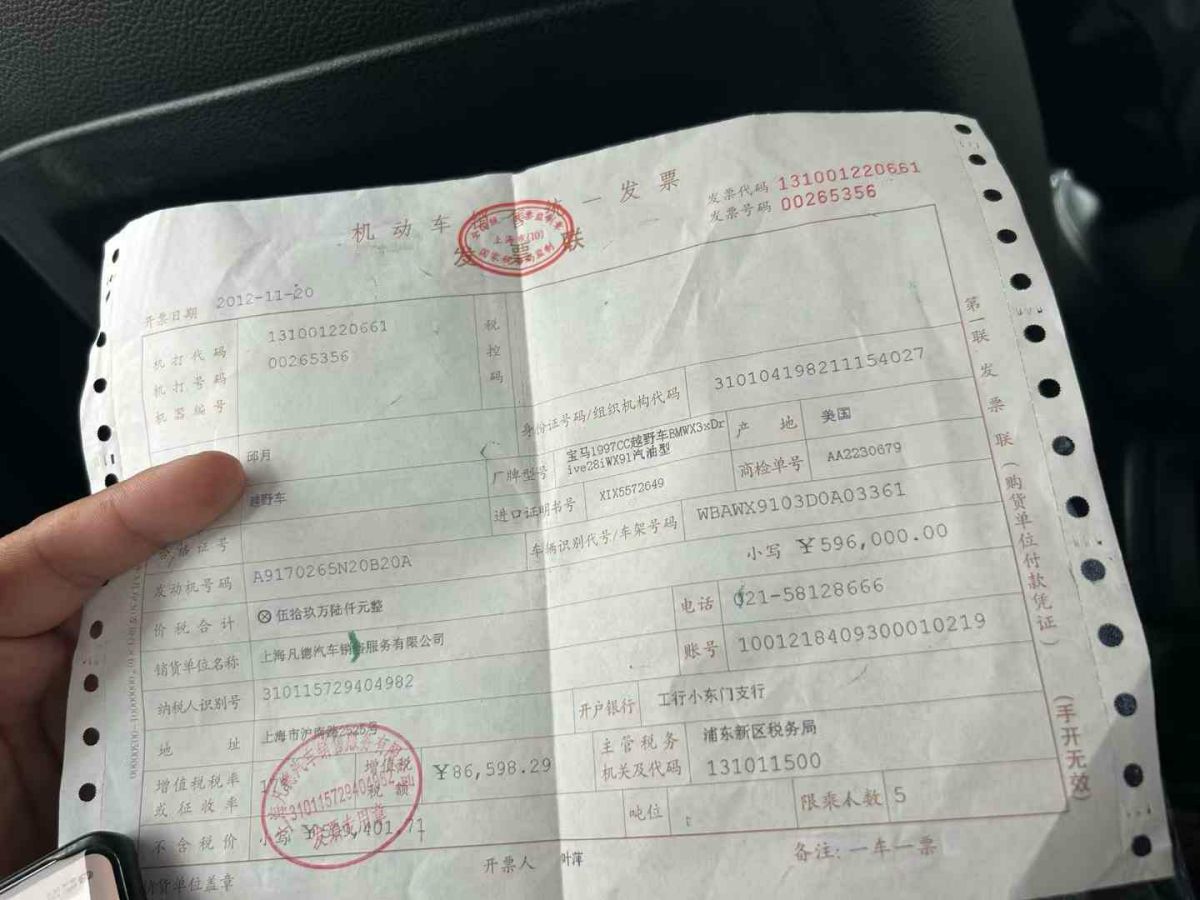 机动车销售统一发票
发票联
发票代码 131001220661
发票号码 00265356
开票日期 2012-11-20
机打代码 131001220661
机打号码 00265356
机器编号
税控码
邱月
身份证号码/组织机构代码 310104198211154027
越野车
厂牌型号 宝马1997CC越野车BMWX3xDr
ive28iWX91汽油型
产地 美国
合格证号
进口证明书号 XIX5572649
商检单号 AA2230679
发动机号码 A9170265N20B20A
车辆识别代号/车架号码 WBAWX9103D0A03361
价税合计 ⊗伍拾玖万陆仟元整
小写 ¥596,000.00
销货单位名称 上海凡德汽车销售服务有限公司
电话 021-58128666
纳税人识别号 310115729404982
账号 1001218409300010219
地址 上海市沪南路2525号
开户银行 工行小东门支行
增值税税率
或征收率
增值税
税额
¥86,598.29
主管税务
机关及代码
浦东新区税务局
131011500
不含税价 小写
吨位
限乘人数 5
开票人 叶萍
备注:一车一票
第一联 发票联(购货单位付款凭证)
(手开无效)